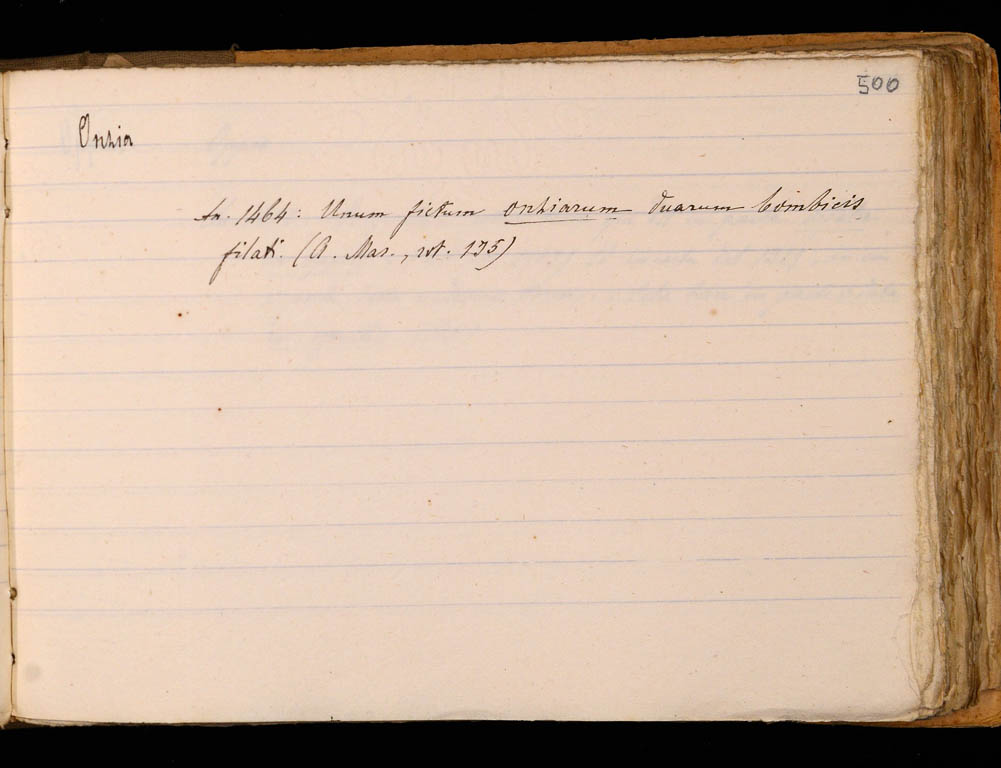 500
Onhia
An. 1464: Unum fictum onhiarum duarum bombicis
filati. (A. Mar., rot. 175)